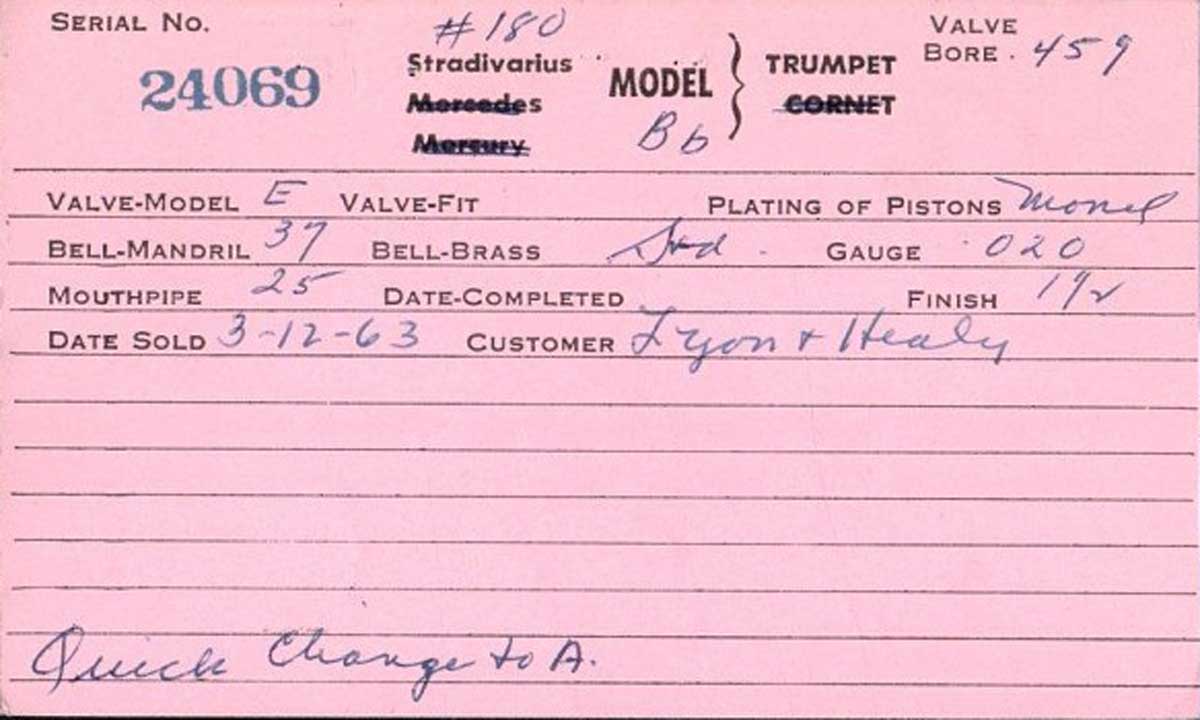 SERIAL NO. #180 VALVE
24069 Stradivarius MODEL } TRUMPET BORE . 459
Mercedes Bb CORNET
Mercury
VALVE-MODEL E VALVE-FIT PLATING OF PISTONS Monel
BELL-MANDRIL 37 BELL-BRASS Std. GAUGE .020
MOUTHPIPE 25 DATE-COMPLETED FINISH
DATE SOLD 3-12-63 CUSTOMER Lyon + Healy
Quick Change to A.